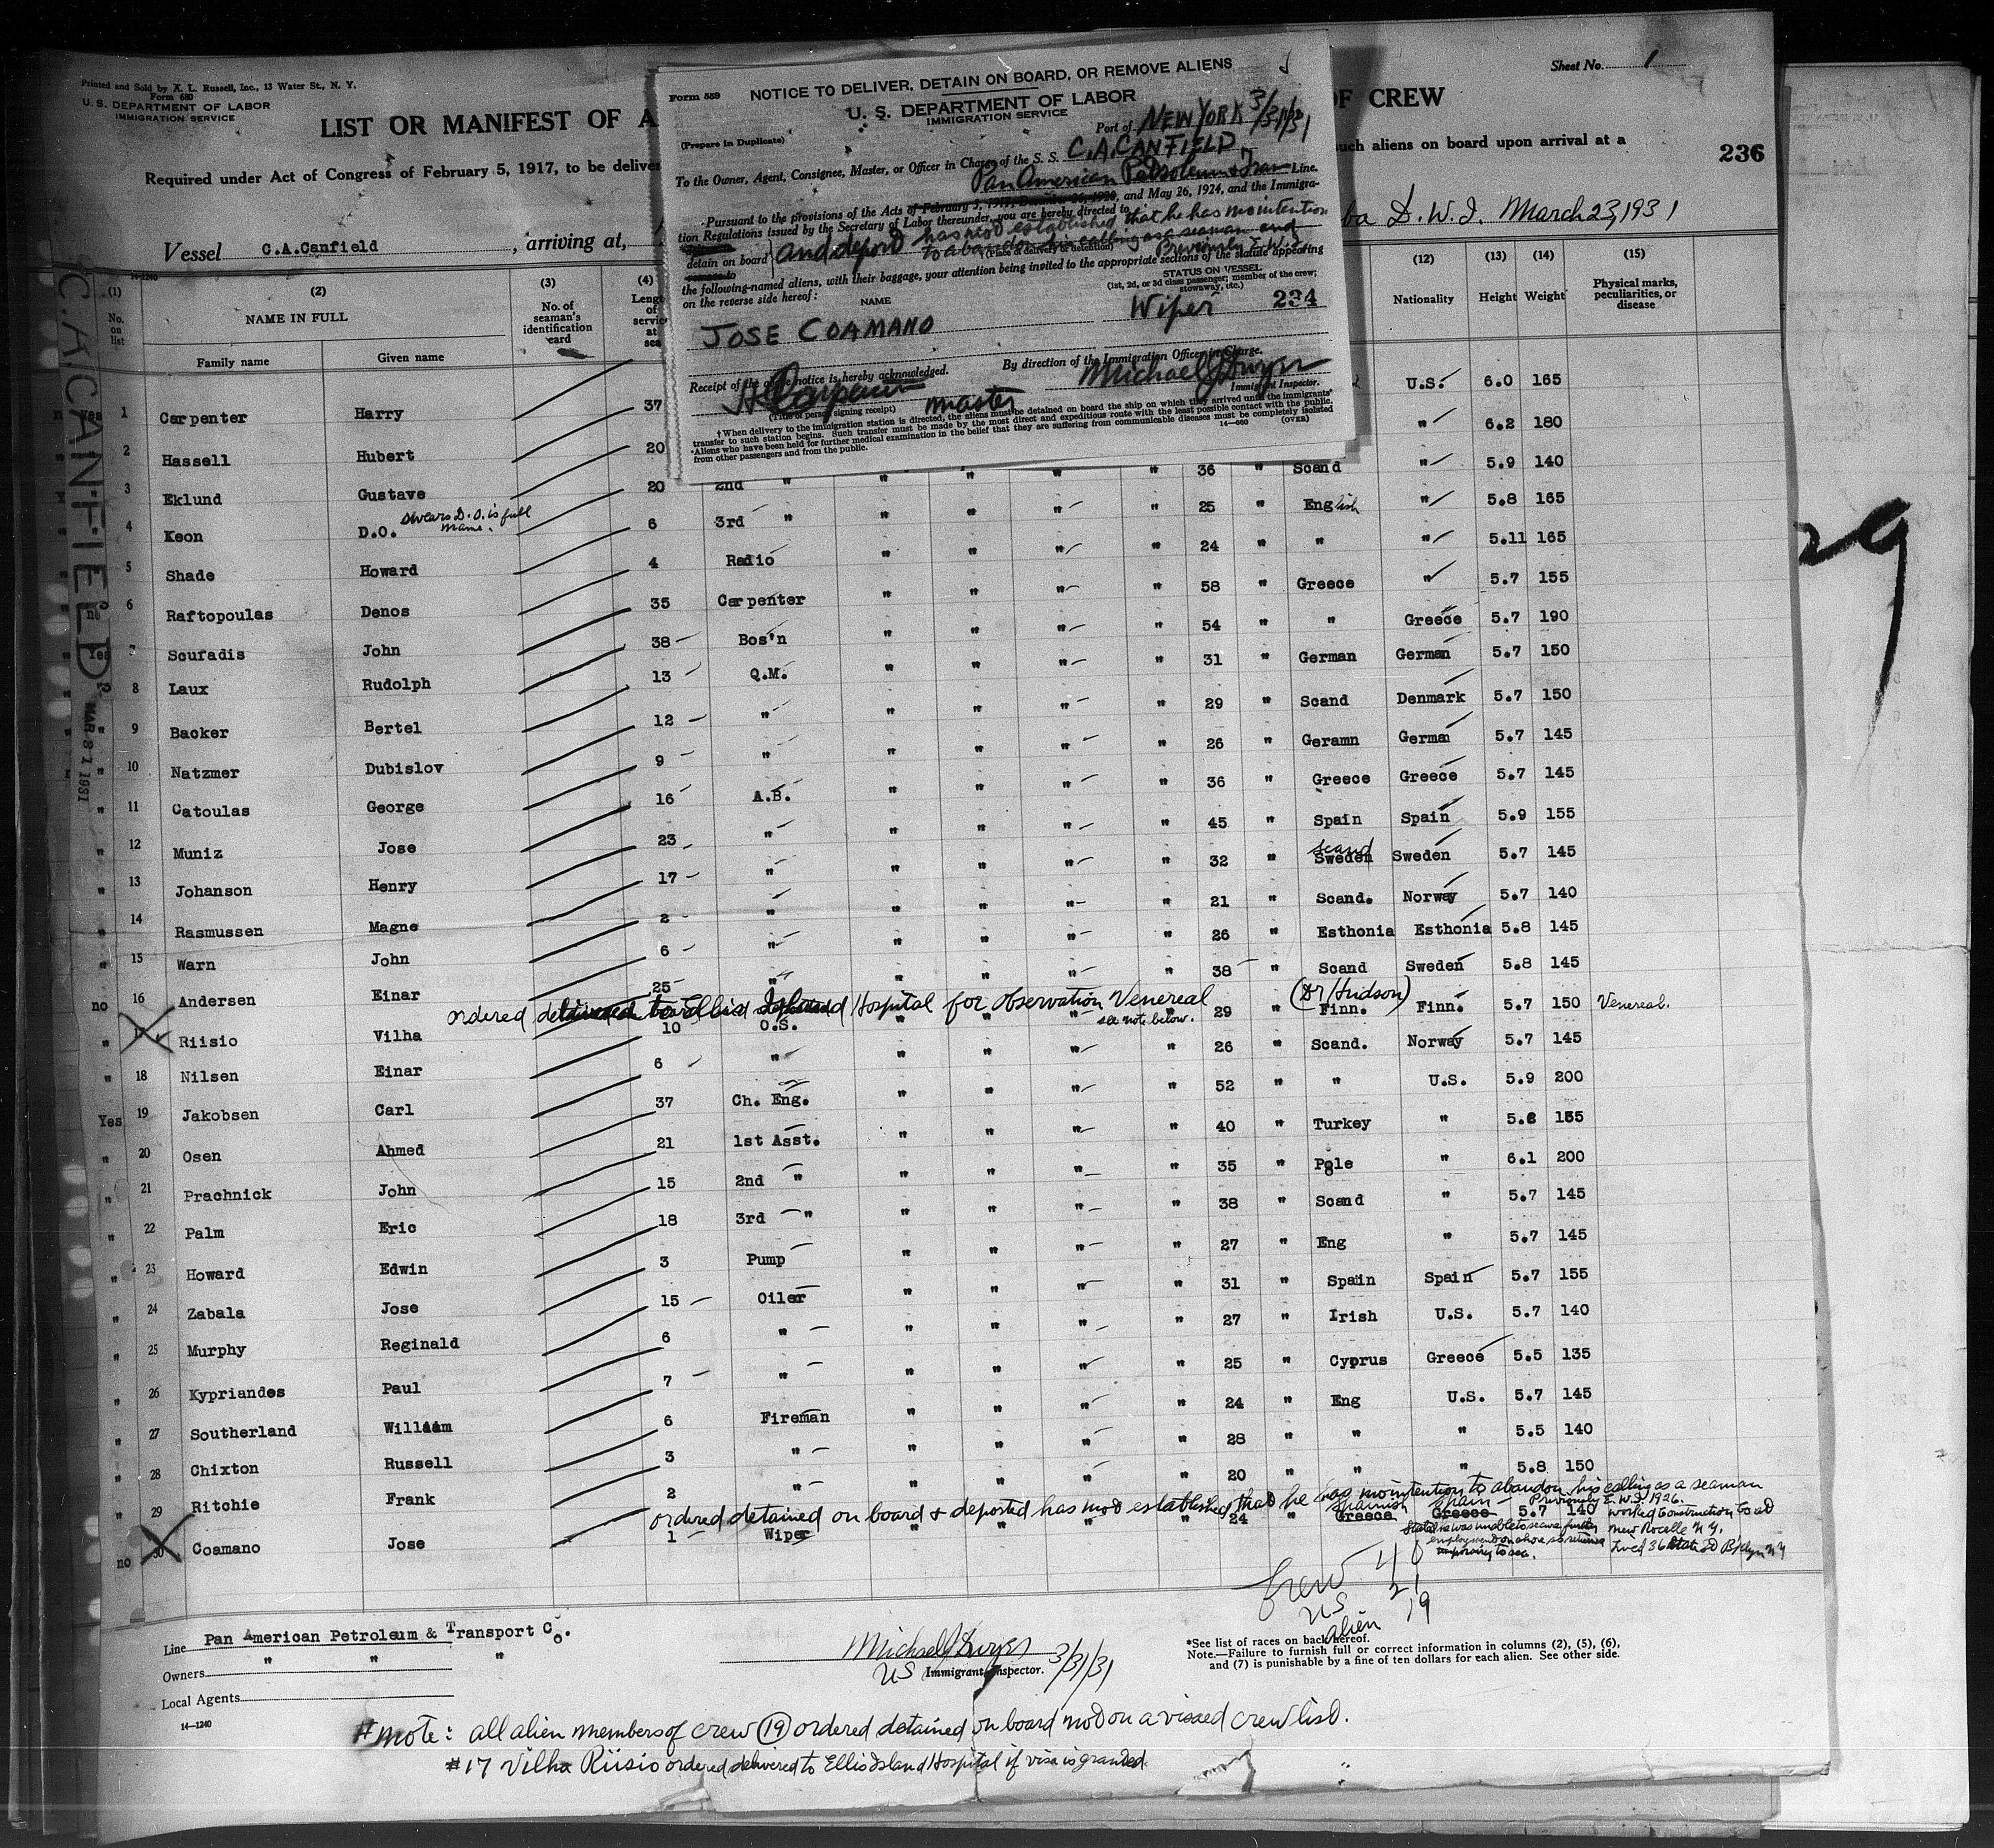 Printed and Sold by X. L. Russell, Inc., 13 Water St., N. Y.
Form 680
U. S. DEPARTMENT OF LABOR
IMMIGRATION SERVICE
Sheet No. 1
LIST OR MANIFEST OF A
OF CREW
236
Required under Act of Congress of February 5, 1917, to be delive
such aliens on board upon arrival at a
Vessel C.A.Canfield , arriving at,
ba D.W.I. March 23, 1931
Form 559
NOTICE TO DELIVER, DETAIN ON BOARD, OR REMOVE ALIENS
U. S. DEPARTMENT OF LABOR
IMMIGRATION SERVICE
(Prepare in Duplicate)
Port of NEW YORK 3/31/31
To the Owner, Agent, Consignee, Master, or Officer in Charge of the S. S. C.A.CANFIELD
Pan American Petroleum & Tran Line.
Pursuant to the provisions of the Acts of February 5, 1917, December 26, 1920, and May 26, 1924, and the Immigra-
tion Regulations issued by the Secretary of Labor thereunder, you are hereby directed to
detain on board and deport has not established that he has no intention
to abandon his calling as a seaman and
(Place of delivery or detention) Previously E.W.I.
the following-named aliens, with their baggage, your attention being invited to the appropriate sections of the statute appearing
on the reverse side hereof:
NAME
STATUS ON VESSEL
(1st, 2d, or 3d class passenger; member of the crew; stowaway, etc.)
JOSE COAMANO Wiper 234
Receipt of the above notice is hereby acknowledged.
By direction of the Immigration Officer in Charge.
H Carpenter master
(Title of person signing receipt)
Michael J Dwyer
Immigrant Inspector.
†When delivery to the immigration station is directed, the aliens must be detained on board the ship on which they arrived until the immigrants'
transfer to such station begins. Such transfer must be made by the most direct and expeditious route with the least possible contact with the public.
*Aliens who have been held for further medical examination in the belief that they are suffering from communicable diseases must be completely isolated
from other passengers and from the public.
14—660 (OVER)
14-1240
(1) (2) (3) (4) (12) (13) (14) (15)
No. on list NAME IN FULL No. of seaman's identification card Nationality Height Weight Physical marks, peculiarities, or disease
Family name Given name
C.A.CANFIELD
MAR 31 1931
Yes 1 Carpenter Harry 37 U.S. 6.0 165
" 2 Hassell Hubert 20 " 6.2 180
" 3 Eklund Gustave 20 2nd " " " " " 36 " Scand " 5.9 140
" 4 Keon D.O. swears D.O. is full name. 6 3rd " " " " " 25 " English " 5.8 165
" 5 Shade Howard 4 Radio " " " " 24 " " " 5.11 165
no 6 Raftopoulas Denos 35 Carpenter " " " " 58 " Greece " 5.7 155
Yes 7 Scufadis John 38 Bos'n " " " " 54 " " Greece 5.7 190
" 8 Laux Rudolph 13 Q.M. " " " " 31 " German German 5.7 150
" 9 Backer Bertel 12 " " " " " 29 " Scand Denmark 5.7 150
" 10 Natzmer Dubislov 9 " " " " " 26 " Geramn German 5.7 145
" 11 Catoulas George 16 A.B. " " " " 36 " Greece Greece 5.7 145
" 12 Muniz Jose 23 " " " " " 45 " Spain Spain 5.9 155
" 13 Johanson Henry 17 " " " " " 32 " Sweden Scand Sweden 5.7 145
" 14 Rasmussen Magne 2 " " " " " 21 " Scand. Norway 5.7 140
" 15 Warn John 6 " " " " " 26 " Esthonia Esthonia 5.8 145
no 16 Andersen Einar 25 " " " " " 38 " Scand Sweden 5.8 145
ordered delivered to Ellis Island Hospital for observation Venereal (Dr Hudson)
" 17 Riisio Vilha 10 O.S. " " " see note below. " 29 " Finn. Finn. 5.7 150 Venereal.
" 18 Nilsen Einar 6 " " " " " 26 " Scand. Norway 5.7 145
Yes 19 Jakobsen Carl 37 Ch. Eng. " " " " 52 " " U.S. 5.9 200
" 20 Osen Ahmed 21 1st Asst. " " " " 40 " Turkey "
" 21 Prachnick John 15 2nd " " " " " 35 " Pole " 6.1 200
" 22 Palm Eric 18 3rd " " " " " 38 " Scand " 5.7 145
" 23 Howard Edwin 3 Pump " " " " 27 " Eng " 5.7 145
" 24 Zabala Jose 15 Oiler " " " " 31 " Spain Spain 5.7 155
" 25 Murphy Reginald 6 " " " " " 27 " Irish U.S. 5.7 140
" 26 Kypriandes Paul 7 " " " " " 25 " Cyprus Greece 5.5 135
" 27 Southerland William 6 Fireman " " " " 24 " Eng U.S. 5.7 145
" 28 Chixton Russell 3 " " " " " 28 " " " 5.5 140
" 29 Ritchie Frank 2 " " " " " 20 " " " 5.8 150
ordered detained on board & deported has not established that he has no intention to abandon his calling as a seaman
no 30 Coamano Jose 1 Wiper " " " " 24 " Greece Spanish Greece Spain 5.7 140 Previously E.W.I. 1926.
worked Construction Co at
New Rocelle N.Y.
Stated he was unable to secure further
employment on shore so returned
to sea.
Lived 36 State St Bklyn N Y
Crew 40
US 21
alien 19
29
Line Pan American Petroleum & Transport Co.
Owners " " "
Local Agents
14—1240
Michael J Dwyer
US Immigrant Inspector. 3/31/31
*See list of races on back hereof.
Note.—Failure to furnish full or correct information in columns (2), (5), (6),
and (7) is punishable by a fine of ten dollars for each alien. See other side.
# note: all alien members of crew (19) ordered detained on board not on a visaed crew list.
#17 Vilha Riisio ordered delivered to Ellis Island Hospital if visa is granted.